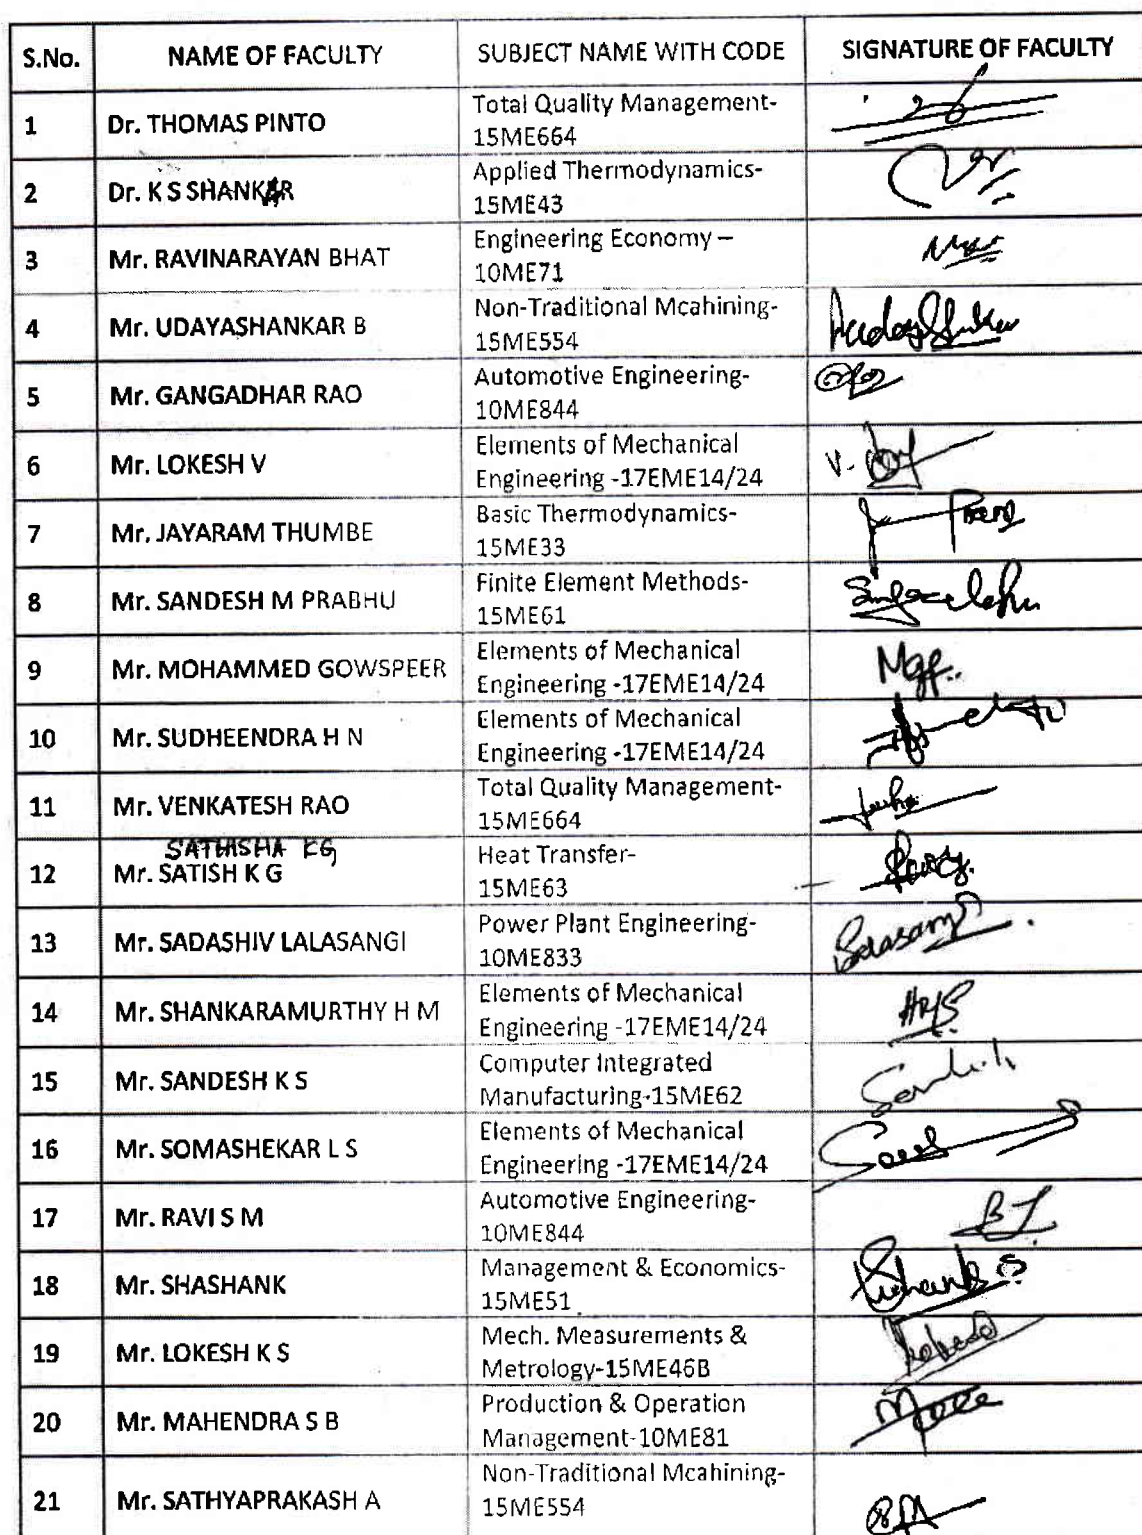 S.No. NAME OF FACULTY SUBJECT NAME WITH CODE SIGNATURE OF FACULTY
1 Dr. THOMAS PINTO Total Quality Management-
15ME664
2 Dr. K S SHANKAR Applied Thermodynamics-
15ME43
3 Mr. RAVINARAYAN BHAT Engineering Economy –
10ME71
4 Mr. UDAYASHANKAR B Non-Traditional Mcahining-
15ME554
5 Mr. GANGADHAR RAO Automotive Engineering-
10ME844
6 Mr. LOKESH V Elements of Mechanical
Engineering -17EME14/24
7 Mr. JAYARAM THUMBE Basic Thermodynamics-
15ME33
8 Mr. SANDESH M PRABHU Finite Element Methods-
15ME61
9 Mr. MOHAMMED GOWSPEER Elements of Mechanical
Engineering -17EME14/24
10 Mr. SUDHEENDRA H N Elements of Mechanical
Engineering -17EME14/24
11 Mr. VENKATESH RAO Total Quality Management-
15ME664
SATHISHA KG
12 Mr. SATISH K G Heat Transfer-
15ME63
13 Mr. SADASHIV LALASANGI Power Plant Engineering-
10ME833
14 Mr. SHANKARAMURTHY H M Elements of Mechanical
Engineering -17EME14/24
15 Mr. SANDESH K S Computer Integrated
Manufacturing-15ME62
16 Mr. SOMASHEKAR L S Elements of Mechanical
Engineering -17EME14/24
17 Mr. RAVI S M Automotive Engineering-
10ME844
18 Mr. SHASHANK Management & Economics-
15ME51
19 Mr. LOKESH K S Mech. Measurements &
Metrology-15ME46B
20 Mr. MAHENDRA S B Production & Operation
Management-10ME81
21 Mr. SATHYAPRAKASH A Non-Traditional Mcahining-
15ME554